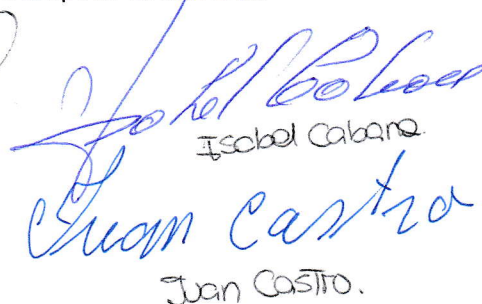 Isabel Cabana
Juan Castro
Juan Castro.